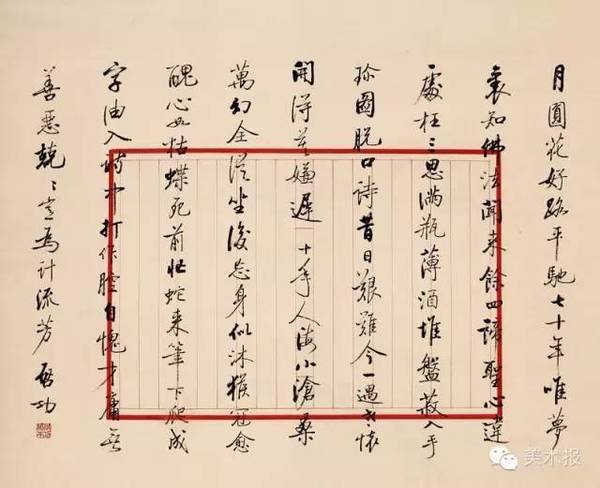 月圓花好路平馳七十年唯夢
裏知佛法聞来餘四諦聖心違
處枉三思滿瓶薄酒堆盤菽入手
珍圖脱口詩昔日艱難今一遇老懷
開得莫嫌遲 十年人海小滄桑
萬幻全從坐後忘身似沐猴冠愈
醜心如枯蝶死前忙蛇来筆下爬成
字油入詩中打作腔自愧才庸無
善惡兢〻豈為計流芳 啓功
美术报